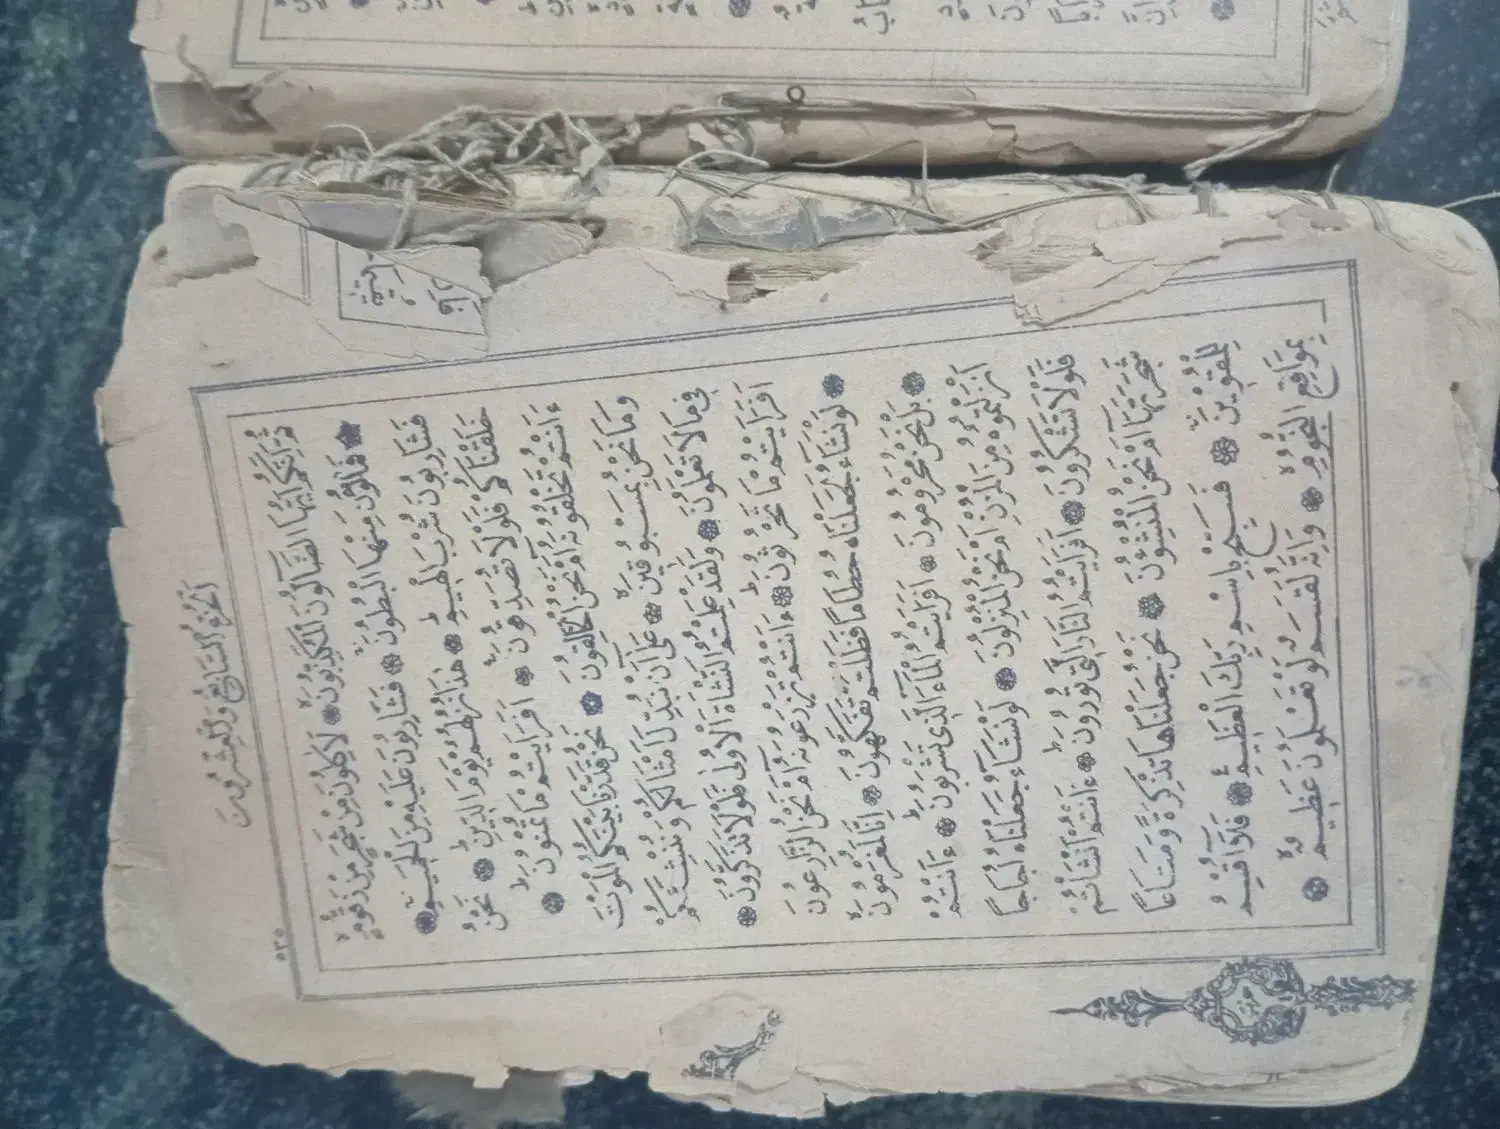 الجزؤ السابع والعشرون
٥٣٥
ثُمَّ اِنَّكُمْ اَيُّهَا الضَّالُّونَ الْمُكَذِّبُونَۙ ❁ لَاٰكِلُونَ مِنْ شَجَرٍ مِنْ زَقُّومٍۙ
❁ فَمَالِؤُنَ مِنْهَا الْبُطُونَۚ ❁ فَشَارِبُونَ عَلَيْهِ مِنَ الْحَمِيمِۚ ❁
فَشَارِبُونَ شُرْبَ الْهِيمِۜ ❁ هٰذَا نُزُلُهُمْ يَوْمَ الدِّينِۜ ❁ نَحْنُ
خَلَقْنَاكُمْ فَلَوْلَا تُصَدِّقُونَ ❁ اَفَرَاَيْتُمْ مَا تُمْنُونَۜ ❁
ءَاَنْتُمْ تَخْلُقُونَهُٓ اَمْ نَحْنُ الْخَالِقُونَ ❁ نَحْنُ قَدَّرْنَا بَيْنَكُمُ الْمَوْتَ
وَمَا نَحْنُ بِمَسْبُوقِينَۙ ❁ عَلٰٓى اَنْ نُبَدِّلَ اَمْثَالَكُمْ وَنُنْشِئَكُمْ
فِى مَا لَا تَعْلَمُونَ ❁ وَلَقَدْ عَلِمْتُمُ النَّشْاَةَ الْاُولٰى فَلَوْلَا تَذَكَّرُونَ ❁
اَفَرَاَيْتُمْ مَا تَحْرُثُونَۜ ❁ ءَاَنْتُمْ تَزْرَعُونَهُٓ اَمْ نَحْنُ الزَّارِعُونَ
❁ لَوْ نَشَٓاءُ لَجَعَلْنَاهُ حُطَامًا فَظَلْتُمْ تَفَكَّهُونَ ❁ اِنَّا لَمُغْرَمُونَۙ
❁ بَلْ نَحْنُ مَحْرُومُونَ ❁ اَفَرَاَيْتُمُ الْمَٓاءَ الَّذِى تَشْرَبُونَۜ ❁ ءَاَنْتُمْ
اَنْزَلْتُمُوهُ مِنَ الْمُزْنِ اَمْ نَحْنُ الْمُنْزِلُونَ ❁ لَوْ نَشَٓاءُ جَعَلْنَاهُ اُجَاجًا
فَلَوْلَا تَشْكُرُونَ ❁ اَفَرَاَيْتُمُ النَّارَ الَّتِى تُورُونَۜ ❁ ءَاَنْتُمْ اَنْشَاْتُمْ
شَجَرَتَهَٓا اَمْ نَحْنُ الْمُنْشِؤُنَ ❁ نَحْنُ جَعَلْنَاهَا تَذْكِرَةً وَمَتَاعًا
لِلْمُقْوِينَۚ ❁ فَسَبِّحْ بِاسْمِ رَبِّكَ الْعَظِيمِ ❁ فَلَٓا اُقْسِمُ
بِمَوَاقِعِ النُّجُومِۙ ❁ وَاِنَّهُ لَقَسَمٌ لَوْ تَعْلَمُونَ عَظِيمٌۙ ❁